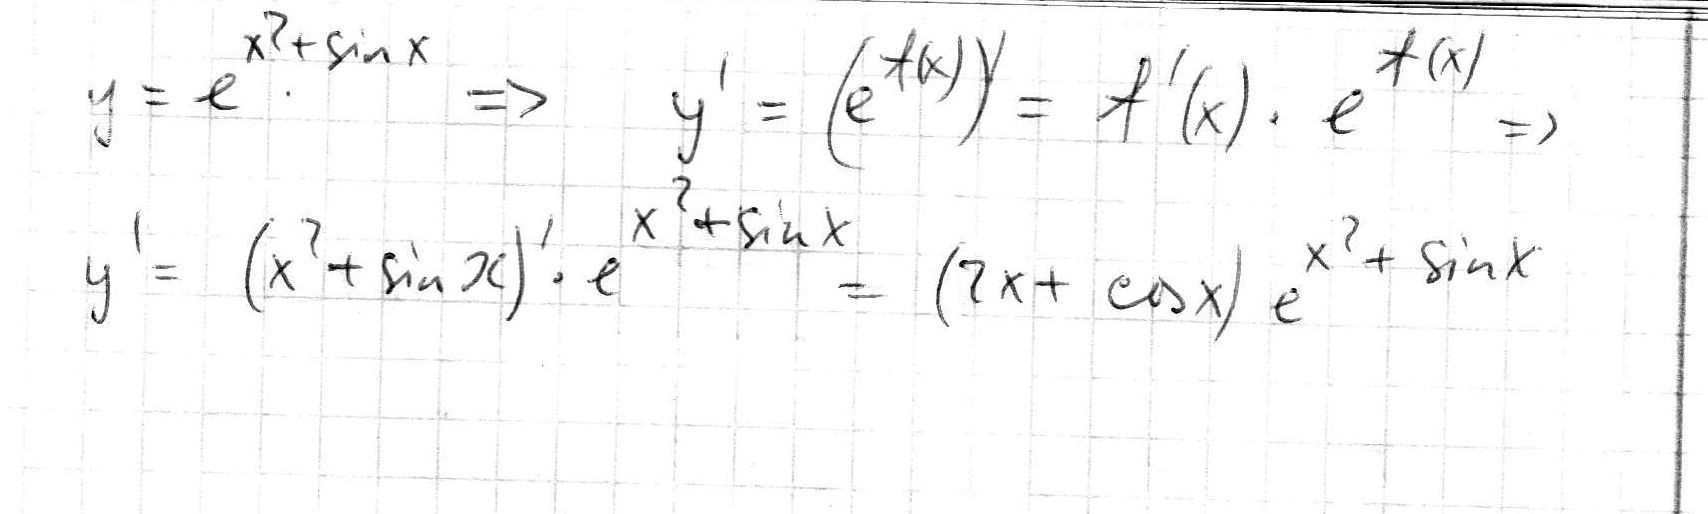 y = e^{x^2 + sin x} => y' = (e^{f(x)})' = f'(x) · e^{f(x)} =>
y' = (x^2 + sin x)' · e^{x^2 + sin x} = (2x + cos x) e^{x^2 + sin x}